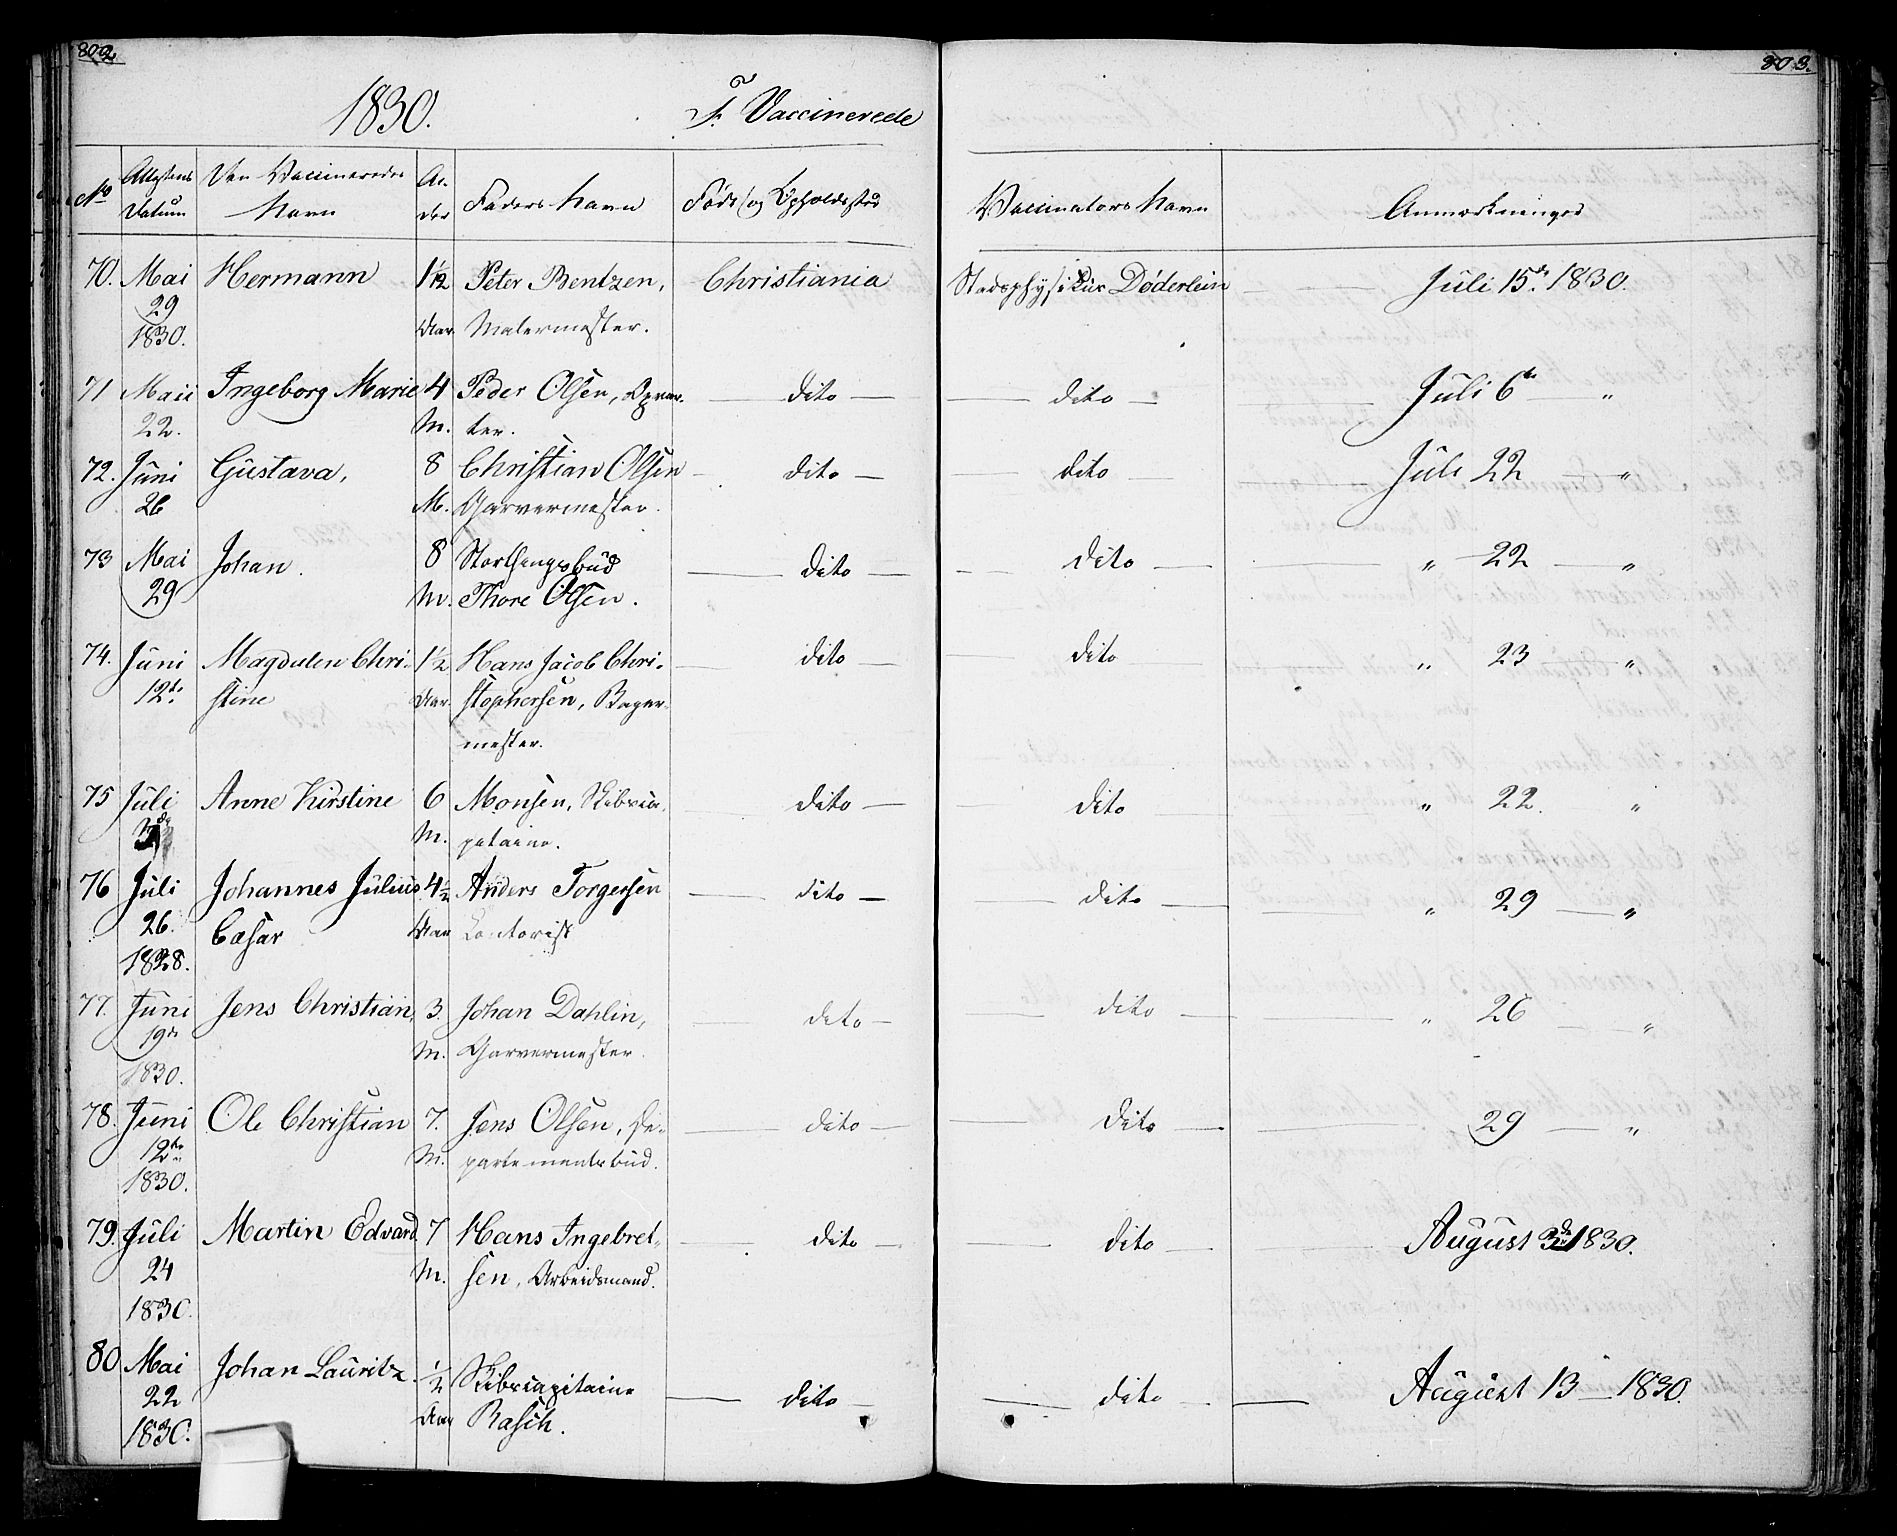 802
803.
1830.
F. Vaccinerede
No
Attestens Datum
Den Vaccineredes Navn
Al-der
Faders Navn
Føde og Opholdssted
Vaccinators Navn
Anmærkninger
70. Mai Hermann 1 1/12 Peter Bentzen, Christiania Stadsphysikus Døderlein — Juli 15de 1830.
29 Aar. Malermester.
1830.
71 Maii Ingeborg Marie 4 Peder Olsen, — dito — — dito — Juli 6te "
22. M. ter.
72. Juni Gustava, 8 Christian Olsen — dito — — dito — Juli 22 — "
26 M. Garvermester.
73 Mai Johan. 8 Storthingsbud — dito — — dito — " 22 — "
29 M. Thore Olsen.
74. Juni Magdalen Chri- 1 1/2 Hans Jacob Chri- — dito — — dito — " 23 — "
12te stine Aar. stophersen, Bager-
mester.
75 Juli Anne Kirstine 6 Monsen, Skibsca- — dito — — dito — " 22. "
3de M. pitaine.
76 Juli Johannes Julius 4 1/2 Anders Torgersen — dito — — dito — " 29 — "
26. Cæsar Aar Contorist
1828.
77. Juni Jens Christian, 3. Johan Dahlin, — dito — — dito — " 26 — "
19de M. Garvermester.
1830.
78. Juni Ole Christian 7. Jens Olsen, De- — dito — — dito — 29 — "
12te M. partementsbud.
1830.
79. Juli Martin Edvard 7 Hans Ingebret- — dito — — dito — August 3de 1830.
24 M. sen, Arbeidsmand.
1830.
80 Mai Johan Lauritz. 1/2 Skibscapitaine — dito — — dito — August 13 — 1830.
22 Aar Rasch.
1830.